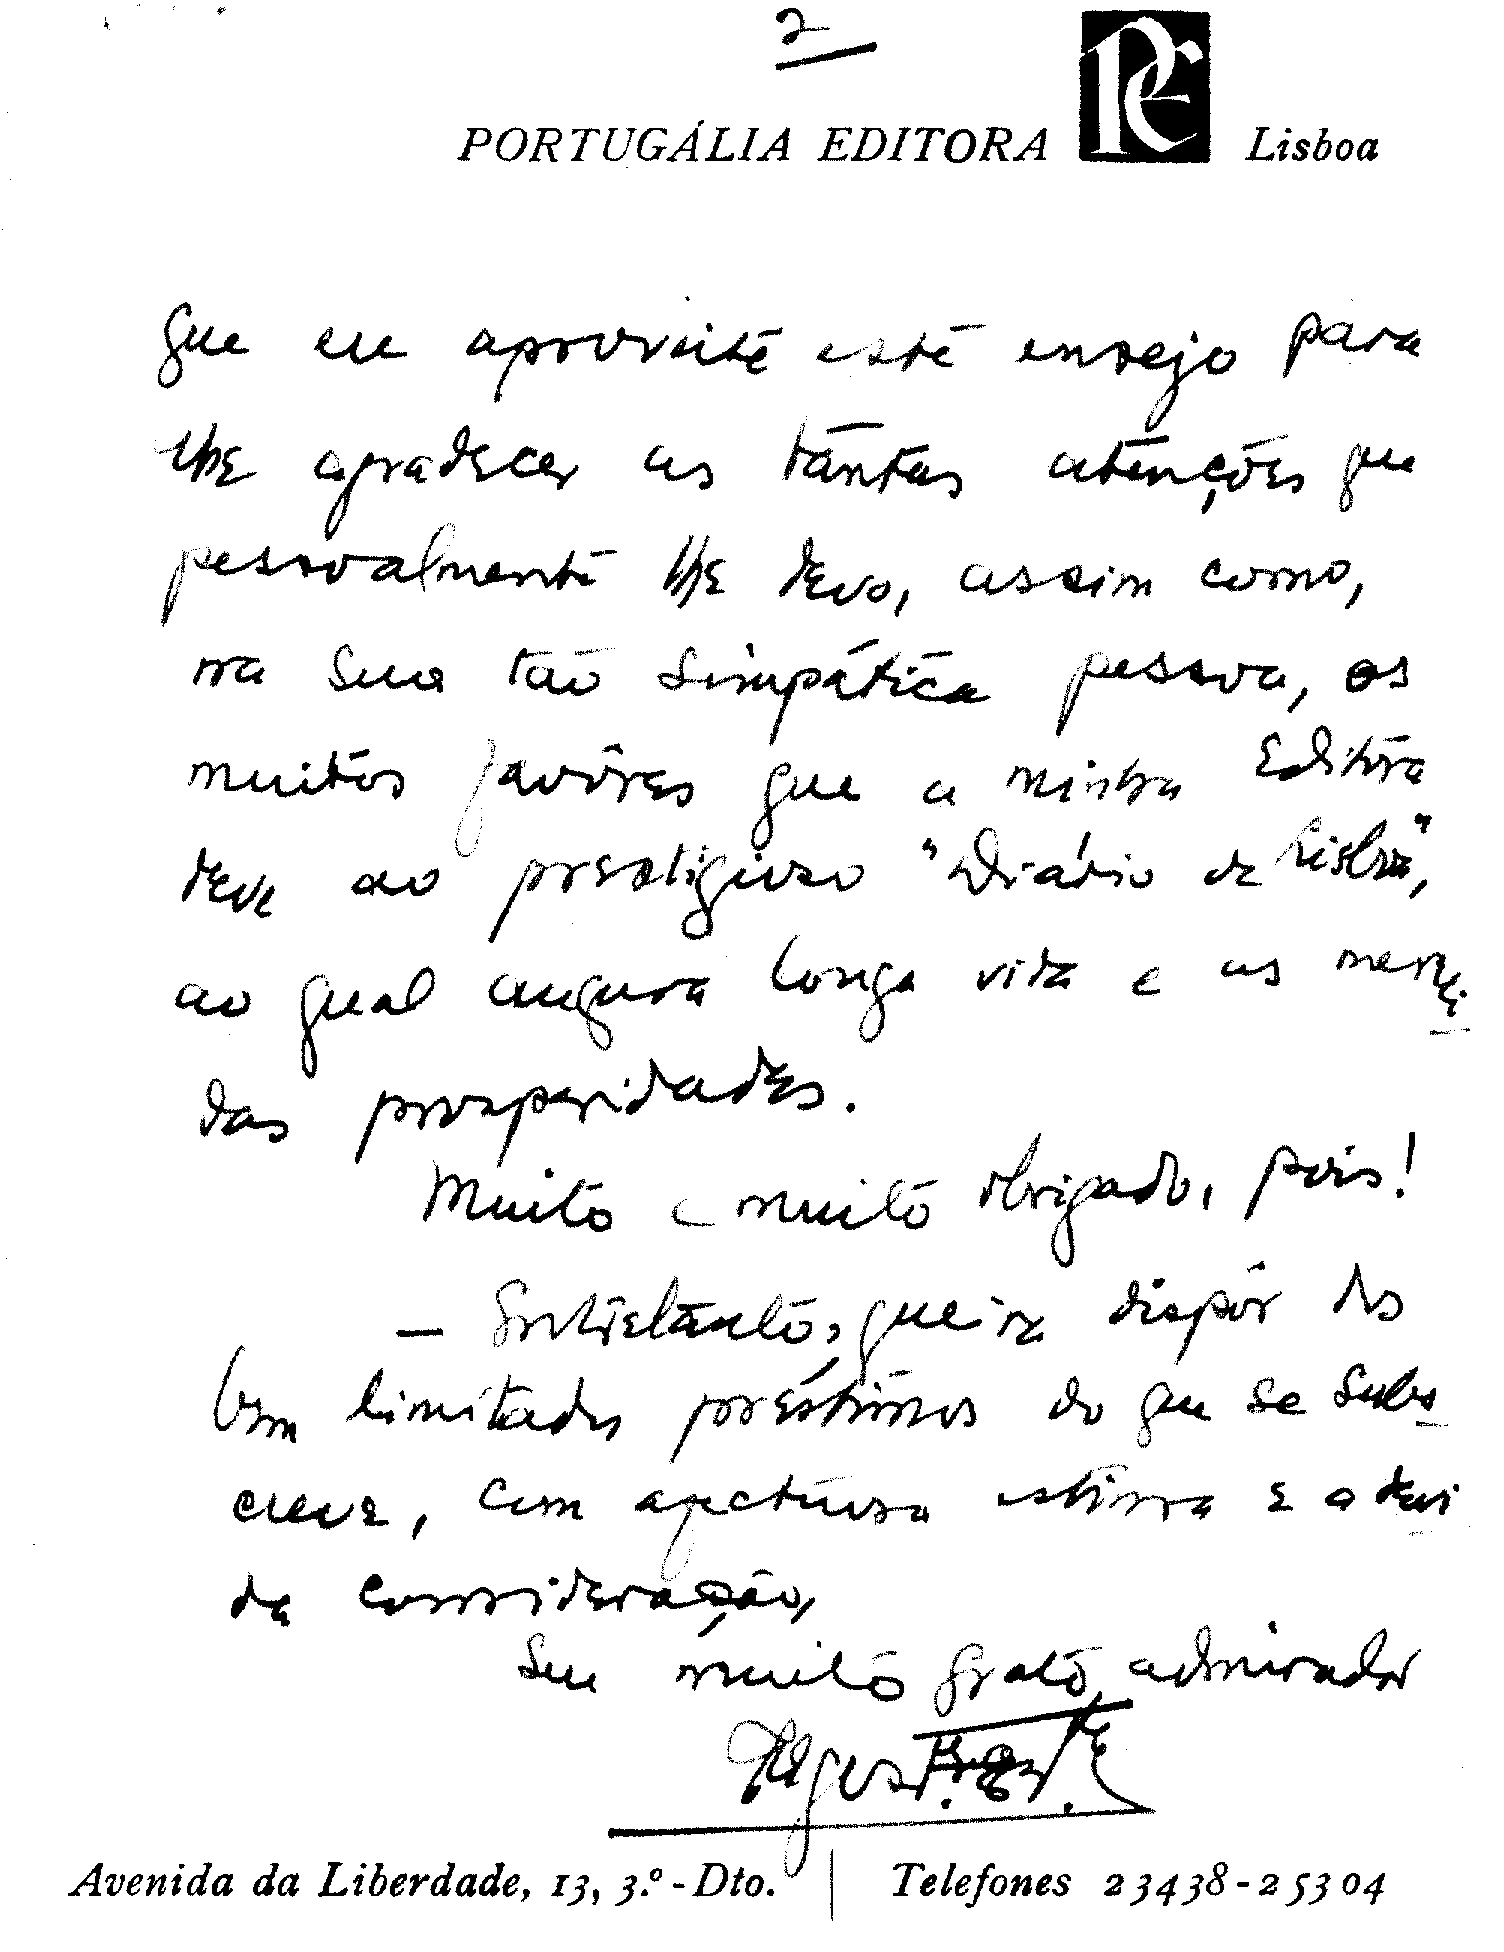 2
PORTUGÁLIA EDITORA PE Lisboa
que eu aproveite este ensejo para
lhe agradecer as tantas atenções que
pessoalmente lhe devo, assim como,
na sua tão simpática pessoa, os
muitos favôres que a minha Editora
deve ao prestigioso "Diário de Lisboa",
ao qual augura longa vida e as mereci-
das prosperidades.
Muito e muito obrigado, pois!
— Entretanto, queira dispôr dos
bem limitados préstimos do que se subs-
creve, com afectuosa estima e a devi-
da consideração,
Seu muito grato admirador
Avenida da Liberdade, 13, 3.º-Dto. | Telefones 23438-25304